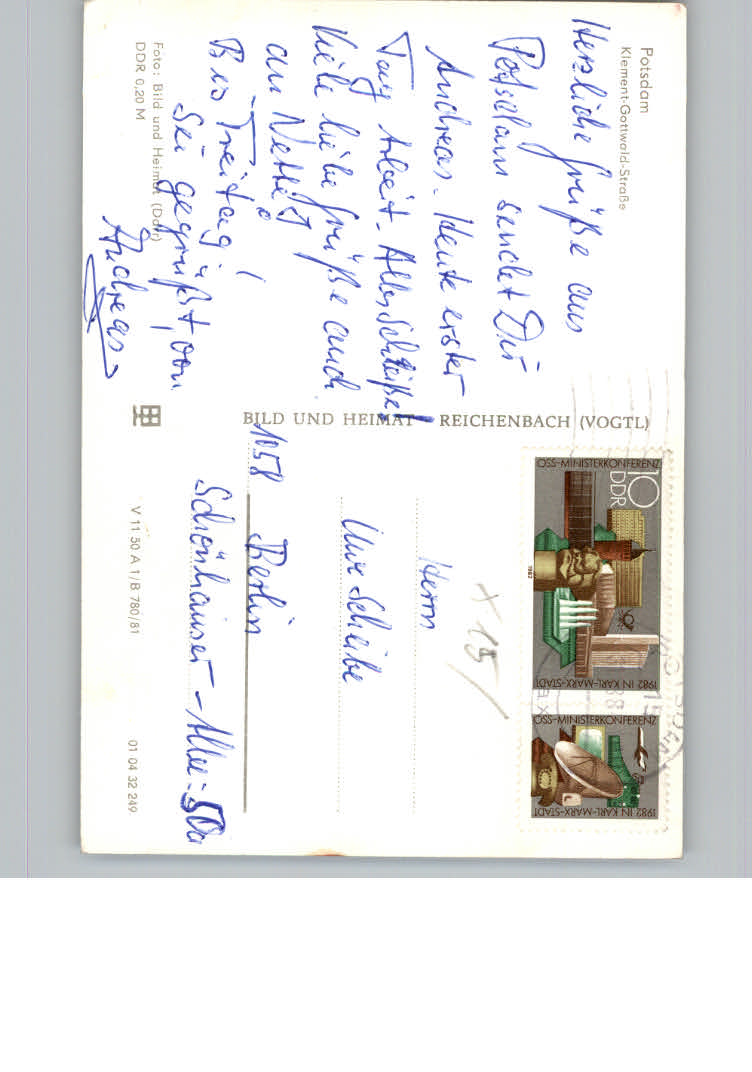 Potsdam
Klement-Gottwald-Straße
Herzliche Grüße aus
Potsdam sendet Dir
Andreas. Heute erster
Tag Arbeit. Alles Scheiße!
Viele liebe Grüße auch
an
Bis Freitag!
Sei gegrüßt von
Andreas
Foto: Bild und Heimat (Ddr)
DDR 0,20 M
BILD UND HEIMAT REICHENBACH (VOGTL)
OSS-MINISTERKONFERENZ
10
DDR
1982
1982 IN KARL-MARX-STADT
OSS-MINISTERKONFERENZ
1982 IN KARL-MARX-STADT
x 15/
Herrn
Uwe Scheibe
1058 Berlin
Schönhauser-Allee-50a
V 11 50 A 1/B 780/81
01 04 32 249